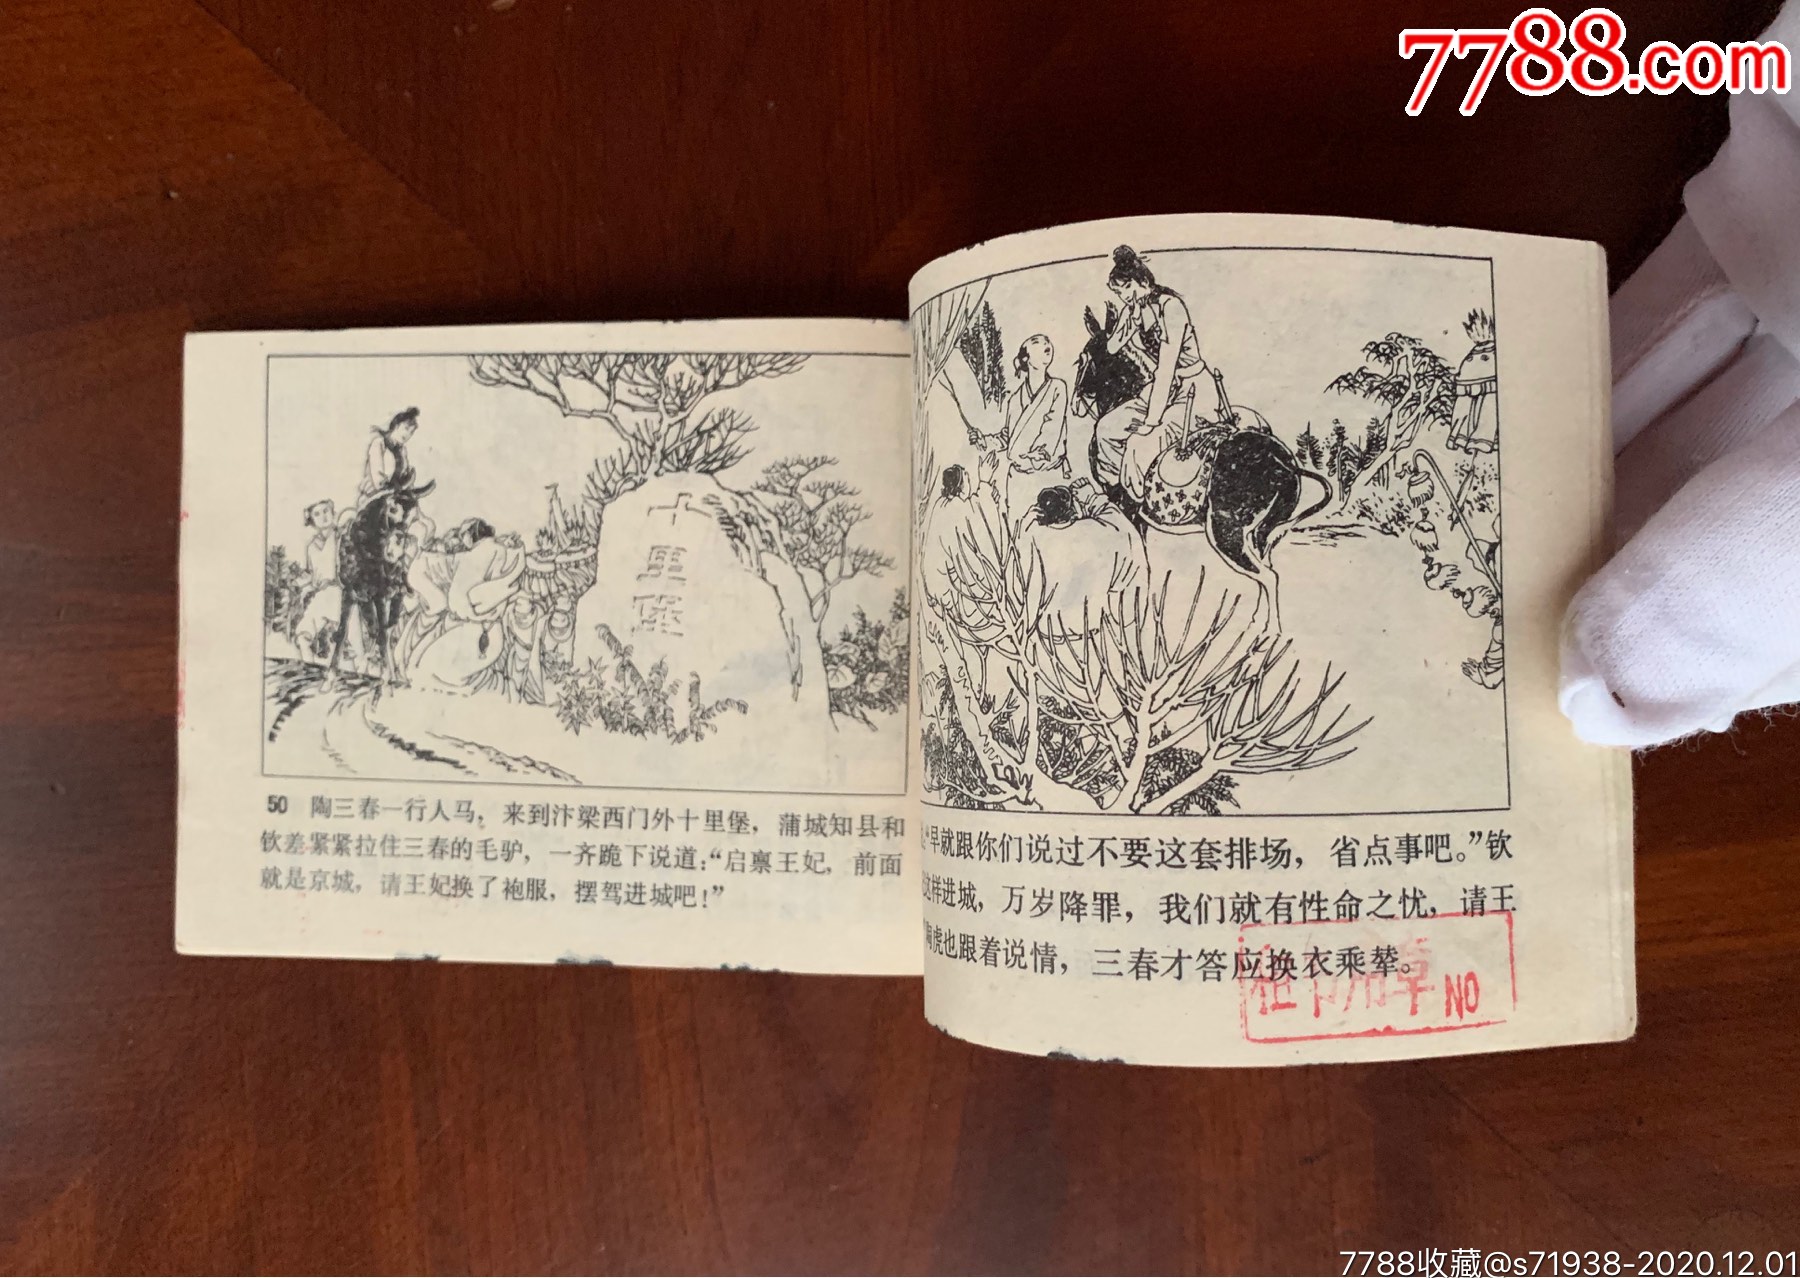 7788.com
十里堡
50 陶三春一行人马，来到汴梁西门外十里堡，蒲城知县和
钦差紧紧拉住三春的毛驴，一齐跪下说道：“启禀王妃，前面
就是京城，请王妃换了袍服，摆驾进城吧！”
“早就跟你们说过不要这套排场，省点事吧。”钦
这样进城，万岁降罪，我们就有性命之忧，请王
陶虎也跟着说情，三春才答应换衣乘辇。
租书用章
NO
7788收藏@s71938-2020.12.01